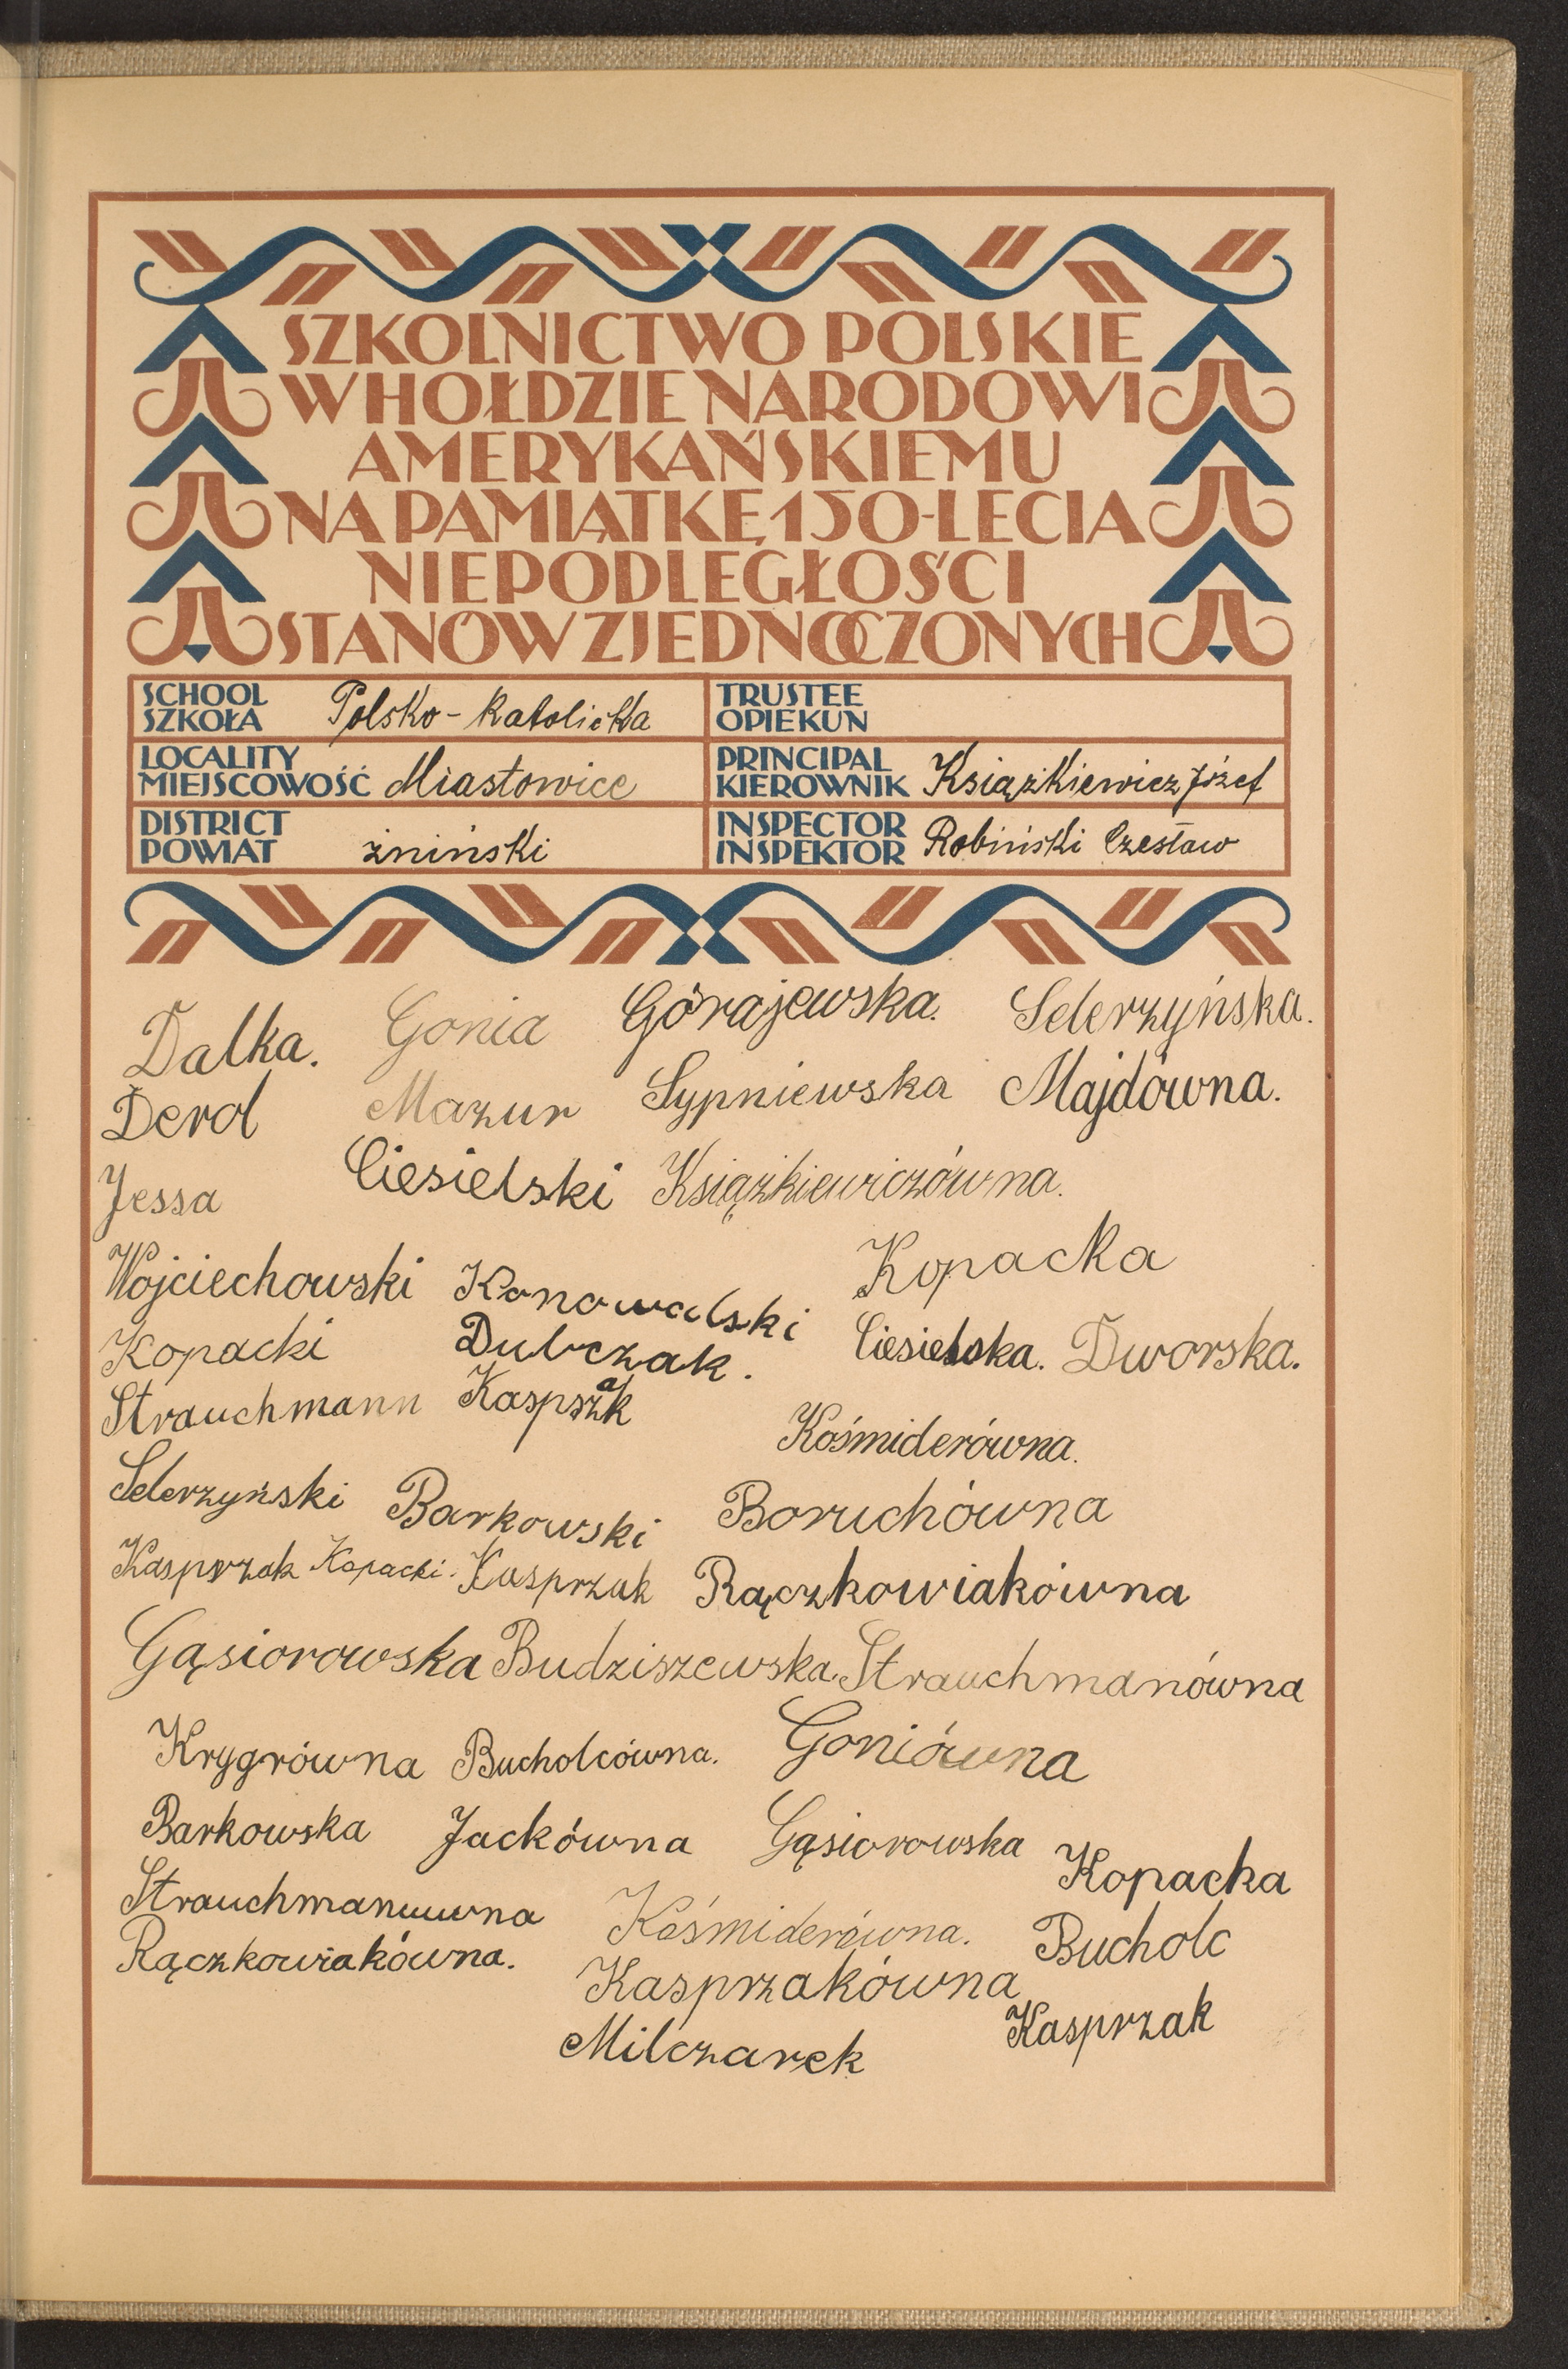 SZKOLNICTWO POLSKIE
W HOŁDZIE NARODOWI
AMERYKAŃSKIEMU
NA PAMIĄTKĘ 150-LECIA
NIEPODLEGŁOŚCI
STANÓW ZJEDNOCZONYCH
SCHOOL
SZKOŁA Polsko-katolicka
TRUSTEE
OPIEKUN
LOCALITY
MIEJSCOWOŚĆ Miastowice
PRINCIPAL
KIEROWNIK Książkiewicz Józef
DISTRICT
POWIAT żniński
INSPECTOR
INSPEKTOR Robiński Czesław
Dalka. Gonia Górajewska. Selerzyńska.
Derol Mazur Sypniewska Majdówna.
Jessa Ciesielski Książkiewiczówna.
Wojciechowski Konowalski Kopacka
Kopacki Dubczak. Ciesielska. Dworska.
Strauchmann Kaspszak Kośmiderówna.
Selerzyński Barkowski Boruchówna
Kasprzak Kopacki. Kasprzak Rączkowiakówna
Gąsiorowska Budziszewska. Strauchmanówna
Krygrówna Bucholcówna. Goniówna
Barkowska Jackówna Gąsiorowska Kopacka
Strauchmanuwna Kośmiderówna. Bucholc
Rączkowiakówna. Kasprzakówna Kasprzak
Milczarek